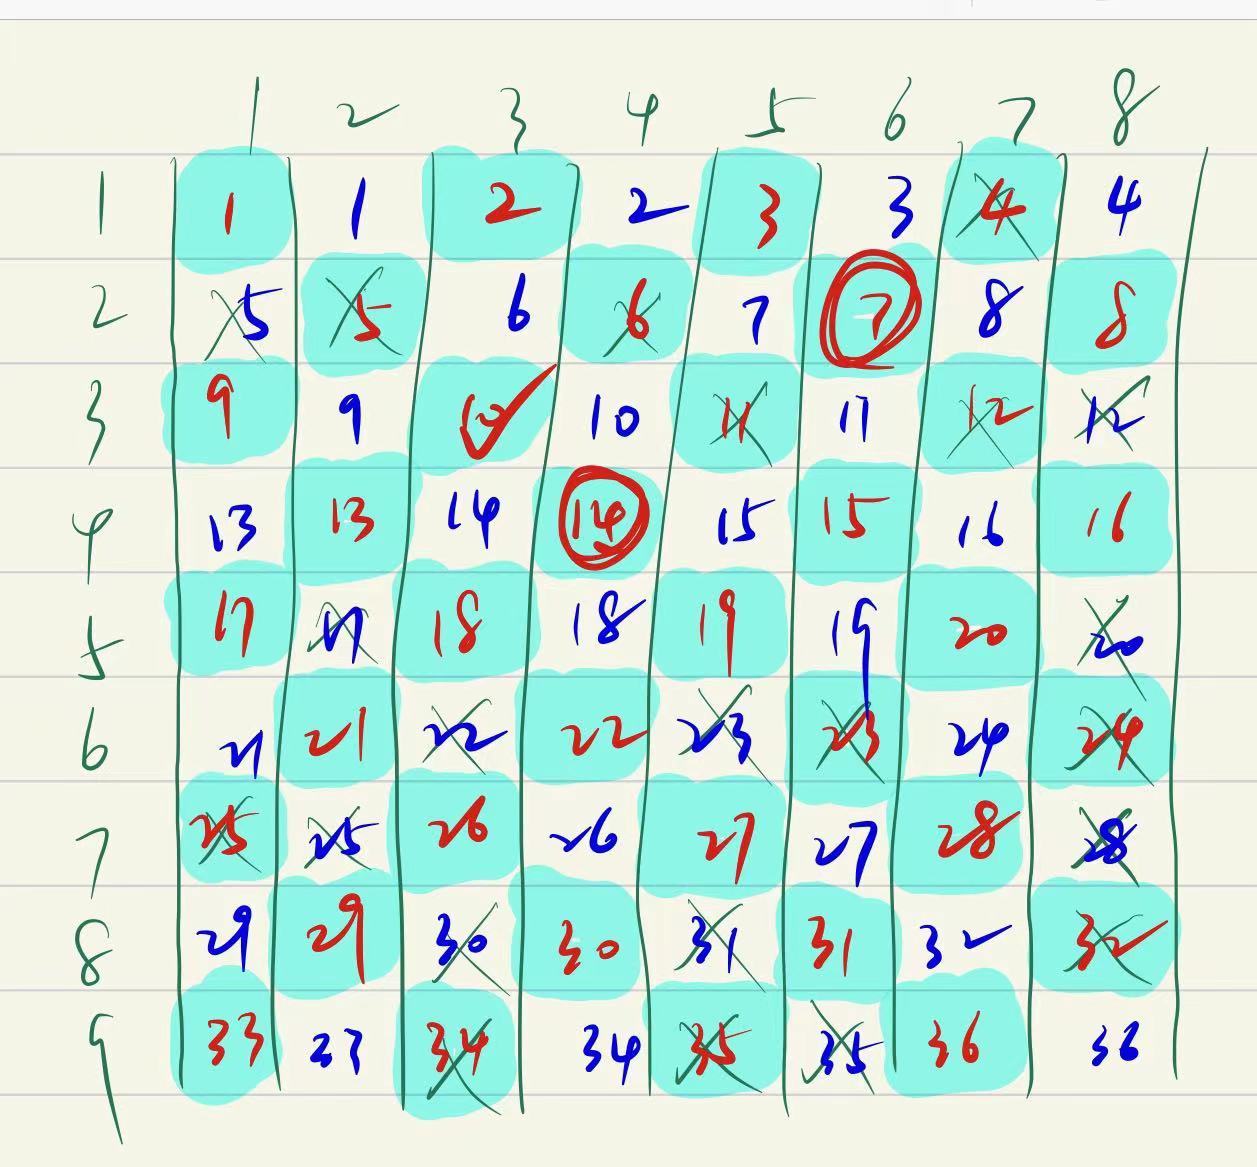 1 2 3 4 5 6 7 8
1 1 1 2 2 3 3 4 4
2 5 5 6 6 7 7 8 8
3 9 9 10 10 11 11 12 12
4 13 13 14 14 15 15 16 16
5 17 17 18 18 19 19 20 20
6 21 21 22 22 23 23 24 24
7 25 25 26 26 27 27 28 28
8 29 29 30 30 31 31 32 32
9 33 33 34 34 35 35 36 36